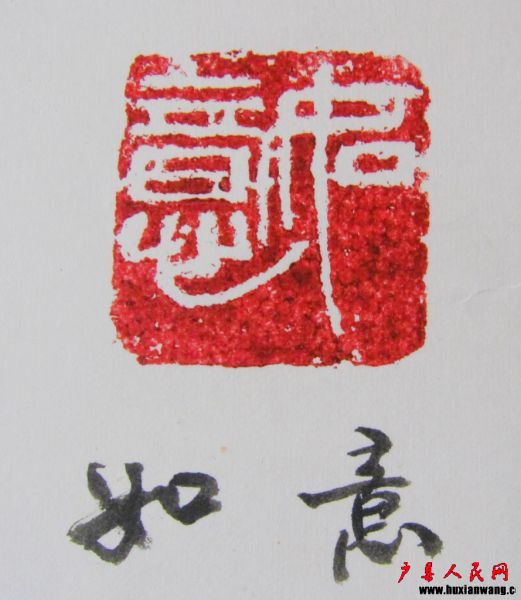 如意
如 意
户县人民网
www.huxianwang.c